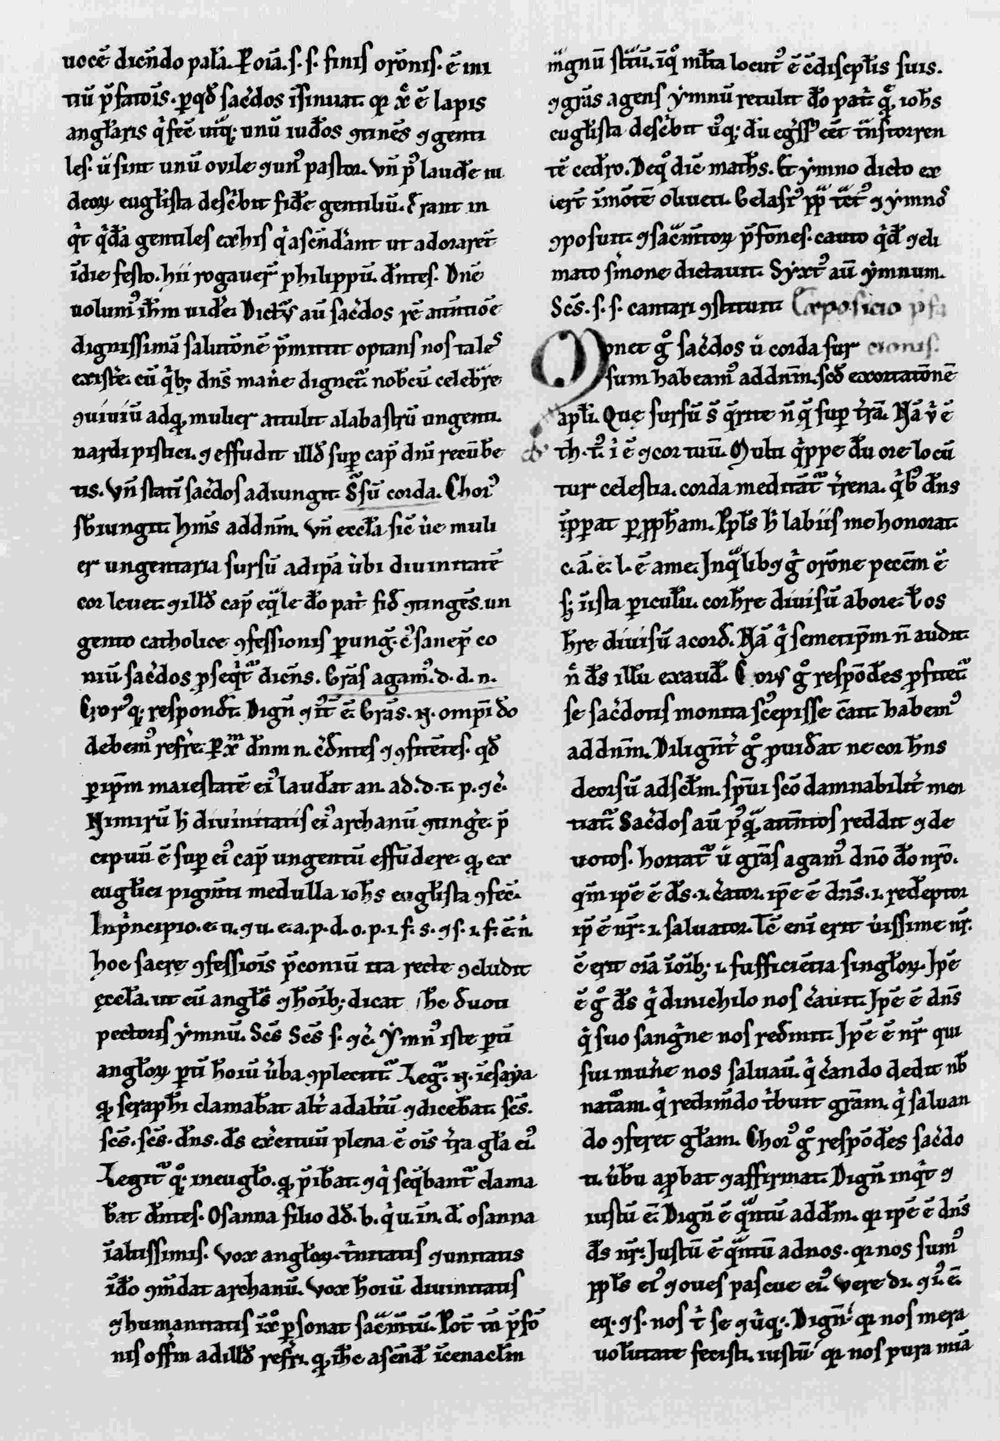 uocē dicēdo palā. ꝑ oīa. s. s. finis orōnis. ē ini
tiū p̄fatōis. ꝑ qđ sac̓dos īsinuat. qꝛ xp̄c ē lapis
angl̓aris q̓ fec̄ utq; unū iudeos ꝯtinēs ꝯ genti
les. ut sint unū ovile ꝯ un⁹ pastor. Vn̄ p̄ laudē iu
deoꝝ eugl̓ista desc̓bit fidē gentiliū. Erant in
q̓t q̓dā gentiles ex his q̓ ascēdant ut adorarēt
ī die festo. hii rogauer̄ philippū. dn̄tes. Dn̄e
uolum⁹ ih̄m uidē. Dict̄us aū sac̓dos rē att̄ntiōe
dignissimā salutōnē p̄mittit optans nos tales
existē. cū q̓b; dn̄s manē dignet̄. nobcū celebrē
ꝯuiuiū adq̄ mulier attulit alabastrū ungenti.
nardi pistici. ꝯ effudit ill̓d sup cap̄ dn̄i recūbē
tis. Vn̄ statī sac̓dos adiungit. Sr̄sū corda. Chor⁹
sb̄iungit. hm̄s ad dn̄m. Vn̄ eccl̓a sic̄ ūe muli
er ungentaria sursū ad ip̄ā ūbi diuinitatē
cor leuet. ꝯ ill̓d cap̄ eq̄le dō pat̓ fid̄ ꝯtingēs. un
gento catholice ꝯfessionis ꝑungt̄.
niū sac̓dos ꝓseq̓t̄ dicēns. Gr̄as agam⁹. d. d. n.
Chor⁹ q; respondt̄. Dign̄ ꝯ iustū ē. Gr̄as. n. omp̄i dō
debem⁹ refrē. ꝑ xp̄m dn̄m n. c̓dntes ꝯ ꝯfitētes. qđ
ꝑ ip̄m maiestatē ei⁹ laudāt an. ad. d. t. p. ꝯc̓.
Nimirū h̄ diuinitatis ei⁹ archanū ꝯtingē. p̄
cipuū ē sup ei⁹ cap̄ ungentū effūdere. q̄ ex
eugl̓ici pigm̄ti medulla ioh̄s eugl̓ista ꝯfec̄.
In p̓ncipio. e. u. ꝯ u. e. a. p. d. o. p. i. f. s. ꝯ s. i. f. ē n̓.
hoc sacrę ꝯfessiōis p̄coniū ita recte ꝯcludit
ęccl̓a. ut cū angl̓s ꝯ hoīb; dicat he duoti
pectoris ymnū. Scs̄ Scs̄ s. ꝯc̓. Ymn⁹ iste ptī
angl̓oꝝ ptī hoīū ūba ꝯplectit̄. Legit̄. n. iesaya
q̄ seraphī clamabāt alt̓ ad alt̓ū ꝯ dicebāt. scs̄.
scs̄. scs̄. dn̄s. ds̄ exc̓ituū plena ē oīs t̓ra gl̓a ei⁹.
Legit̄ q⁹q; in eugl̓o. q̄ p̄ibāt. ꝯ q̓ seq̄bant̄ clama
bāt dn̄tes. Osanna filio dd̄. b. q̓ u. in. d. osanna
ī altissimis. Vox angl̓oꝝ t̓nitatis ꝯ unitatis
ī dō ꝯm̄dat archanū. Vox hoīū diuinitatis
ꝯ humanitatis ī xp̄o ꝑsonat sac̄m̄tū. Pot̄ tn̄ p̄fō
nis offm̄ ad ill̓d refr̓i. q̄ ih̄c ascēd̄ ī cenacl̄m
mgnū stātū. īq⁹ ml̄ta locut⁹ ē cdiscipl̄is suis.
ꝯ gr̄as agens ymnū retulit dō pat̓. q̄ ioh̄s
eugl̓ista desc̓bit
tē cedro. De q⁹ dic̄ math̄s. Et ymno dicto ex
ier̄t ī mōtē oliueti. Gelasi⁹ pp̄ ꝯ ymnos
ꝯposuit. ꝯ sac̄m̄toꝝ p̄fōnes. cauto q̓d̄ ꝯ eli
mato s̓mone dictauit. Syxt⁹ aū ymnum.
Scs̄. s. s. cantari ꝯstituit. Exposicio p̄fa
Monet g̊ sac̓dos ū corda sur cionis.
sum habeam⁹ ad dn̄m. scd̄ exortatōnē
apl̄i. Que sursū s̄ q̄rite n̄ q̄ sup t̓rā. Nā ÿ ē
th. t⁹. i ē ꝯ cor tuū. Multi q̓ppe dū ore locū
tur celestia. corda meditāt̄ t̓rena. q̓b⁹ dn̄s
īpp̄at ꝑ pp̄ham. Ppl̄s h̄ labiis me honorat.
c. ā. e. l. ē a me. In q̄libꝯ g̊ orōne pecēm ē
s; ī ista piculū. cor hr̄e diuisū ab ore. ł os
hr̄e diuisū a cord̄. Nā q̓ semetip̄m n̄ audit.
n̄ ds̄ illū exaud̄. Chorus g̊ respōdēs ꝓfitet̄
se sac̓dotis monita scēpisse cāit. habem⁹
ad dn̄m. Diligēt̓ g̊ puīdat ne cor hn̄s
deorsū ad scl̄m. spūi scō damnabilit̓ men
tiat̄. Sac̓dos aū p⁹q̄ att̄ntos reddit ꝯ de
uotos. hortat̄ ū gr̄as agam⁹ dn̄o dō nr̄o.
qm̄ ipē ē ds̄. i. c̓ator. ipē ē dn̄s. i. redēptor
ipē ē nr̄. i. saluator. Tc̄ enī erit ūissime nr̄.
c̄ erit oīā ī oīb; i. sufficiētia singl̓oꝝ. Ipē
ē g̊ ds̄ q̓ di nichilo nos c̓auit. Ipē ē dn̄s
q̓ suo sang̓ne nos redimit. Ipē ē nr̄ qui
sui mun̄e nos saluaū. q̓ c̓ando dedit nb̄
natām. q̓ redimēdo t̓buit gr̄am. q̓ saluan
do ꝯferet gl̓am. Chor⁹ g̊ respōdēs sac̓do
ti. ūbū apbat ꝯ affirmat. Dign̄ inq̓t ꝯ
iustū ē. Dign̄ ē q̄ntū ad dm̄. qꝛ ipē ē dn̄s
ds̄ nr̄. Iustū ē q̄ntū ad nos. qꝛ nos sum⁹
ppl̄s ei⁹ ꝯ oues pascue ei⁹. Vere di. ꝯ i. ē
eq. ꝯ s. nos t̓ se ꝯ ūq;. Dign̄ qꝛ nos mera
volūtate fecisti. iustū qꝛ nos pura mīā